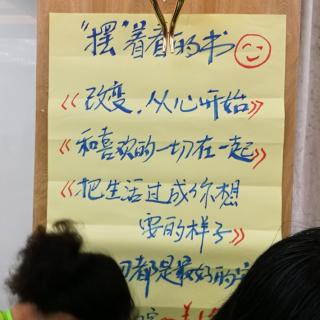 “摆”着看的书
《改变,从心开始》
《和喜欢的一切在一起》
《把生活过成你想
要的样子》
都是最好的